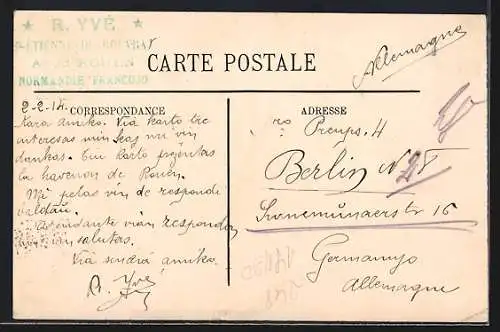 ★ R. YVÉ ★
St ETIENNE-DU-ROUVRAY
ROUEN
NORMANDIE FRANCUJO
CARTE POSTALE
Allemagne
CORRESPONDANCE
ADRESSE
2-2-14.
Kara amiko. Via karto tre
interesas min kaj mi vin
dankas. Tiu karto projentas
la havenon de Rouen.
Mi petas vin de responde
baldaŭ.
Atendante vian respondon
mi vin salutas.
Via sindra amiko.
R. Yvé
Preups. 4
Berlin N
Swinemünderstr 16
Germanujo
Allemagne